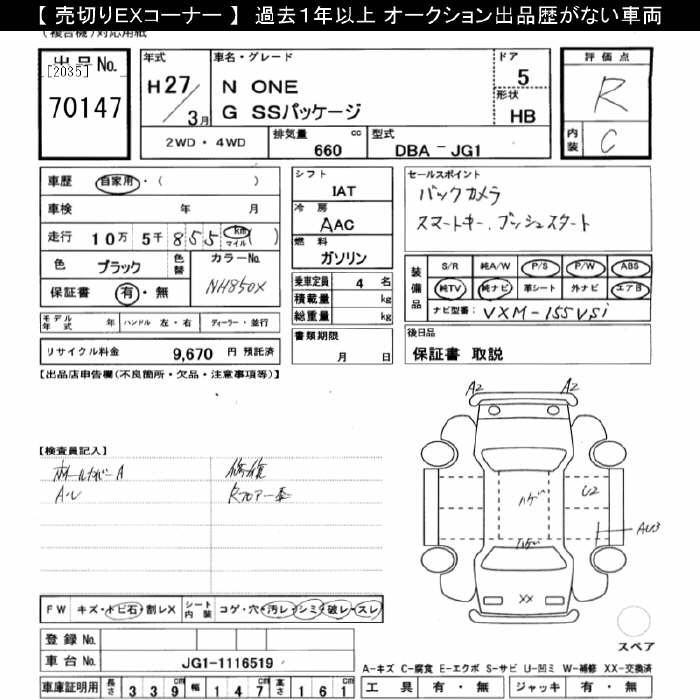 【 売切りEXコーナー 】 過去１年以上 オークション出品歴がない車両
(複合機)対応用紙
出品No. [2035] 70147
年式 H27/3月
車名・グレード N ONE G SSパッケージ
ドア 5
形状 HB
評価点 R
内装 C
2WD・4WD 排気量 660 cc 型式 DBA-JG1
車歴 自家用・( )
車検 年 月
走行 10万 5千 855 km マイル ( )
色 ブラック 色替 カラーNo. NH850X
保証書 有・無
モデル年式 年 ハンドル 左・右 ディーラー・並行
リサイクル料金 9,670 円 預託済
シフト IAT
冷房 AAC
燃料 ガソリン
乗車定員 4 名
積載量 kg
総重量 kg
書類期限 月 日
セールスポイント
バックカメラ
スマートキー、プッシュスタート
装備品 S/R 純A/W P/S P/W ABS
純TV 純ナビ 革シート 外ナビ エアB
ナビ型番: VXM-155VSi
後日品
保証書 取説
【出品店申告欄(不良箇所・欠品・注意事項等)】
【検査員記入】
A
修復
Aル
Rフロアー
A2 A2
ハゲ
U2
AU3
ハゲ
XX
FW キズ・トビ石・割レX シート内装 コゲ・穴・汚レ・シミ・破レ・スレ
登録No.
車台No. JG1-1116519
車庫証明用 長さ 339cm 幅 147cm 高さ 161cm
スペア
A-キズ C-腐食 E-エクボ S-サビ U-凹ミ W-補修 XX-交換済
工具 有・無 ジャッキ 有・無